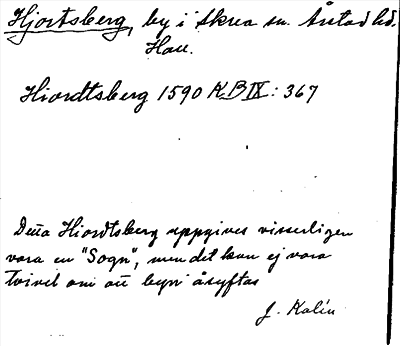 Hjortsberg, by i Skrea sn. Årstad hd.
Hall.
Hiordtsberg 1590 KB IX: 367
Detta Hiordtsberg uppgives visserligen
vara en "Sogn", men det kan ej vara
tvivel om att byn åsyftas
J. Kalén